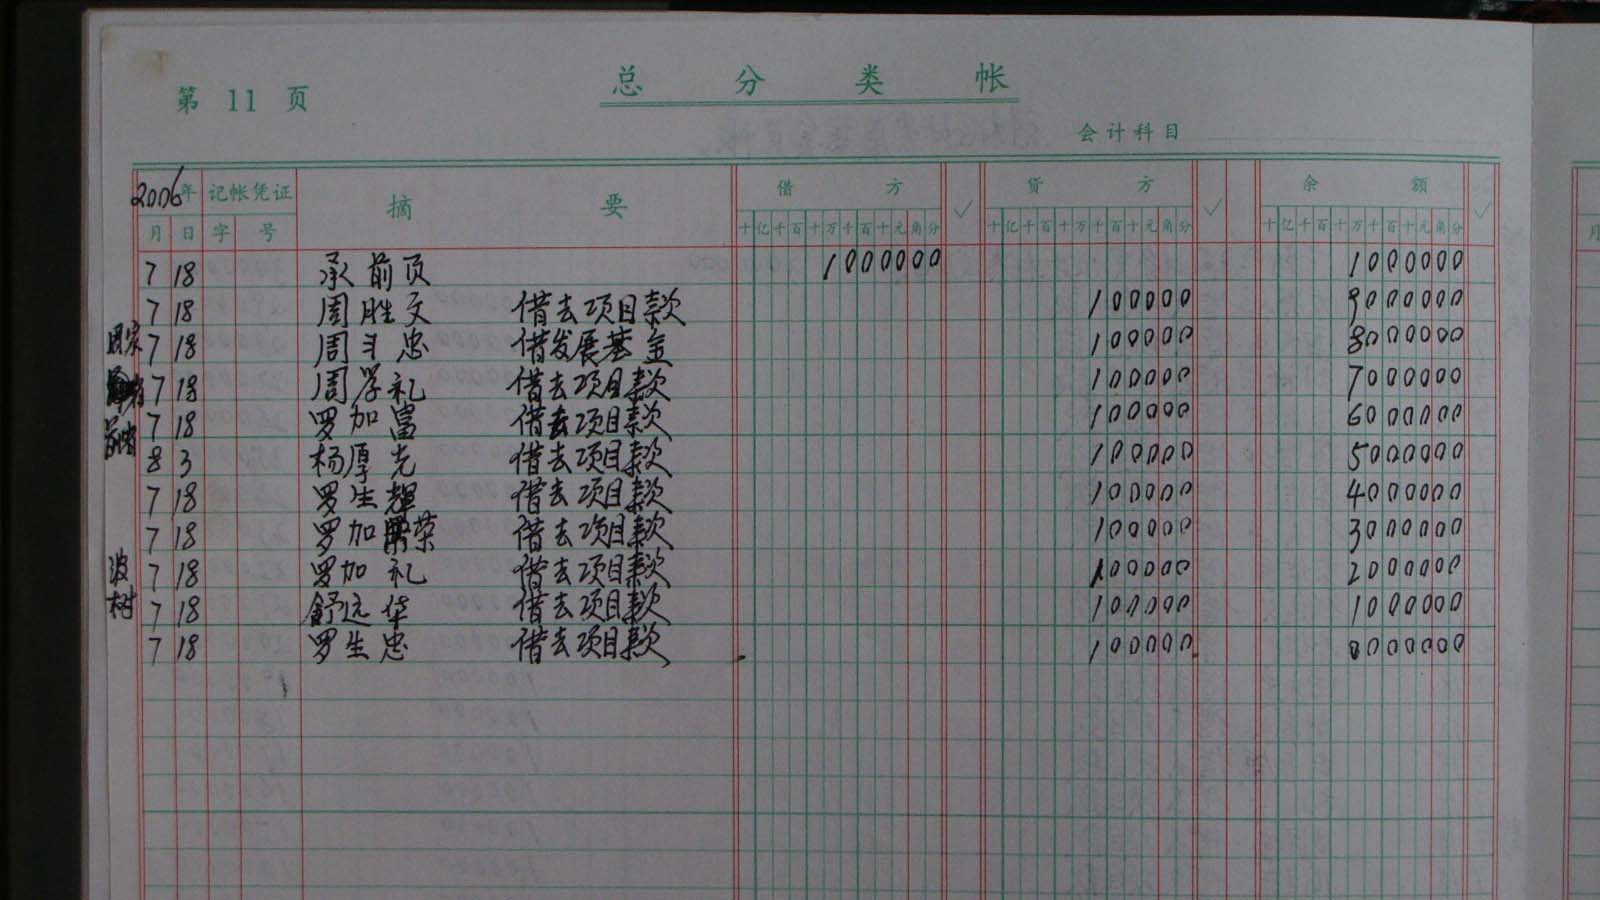 总分类帐
第 11 页
会计科目
2006年 记帐凭证 摘要 借方 ✓ 贷方 ✓ 余额 ✓
月 日 字 号 十亿千百十万千百十元角分 十亿千百十万千百十元角分 十亿千百十万千百十元角分
7 18 承前页 1000000 1000000
7 18 周胜文 借去项目款 100000 9000000
7 18 周斗忠 借发展基金 100000 8000000
7 18 周学礼 借去项目款 100000 7000000
7 18 罗加富 借去项目款 100000 6000000
8 3 杨厚光 借去项目款 100000 5000000
7 18 罗生辉 借去项目款 100000 4000000
7 18 罗加荣 借去项目款 100000 3000000
7 18 罗加礼 借去项目款 100000 2000000
波树 7 18 舒远华 借去项目款 100000 1000000
7 18 罗生忠 借去项目款 100000 0000000